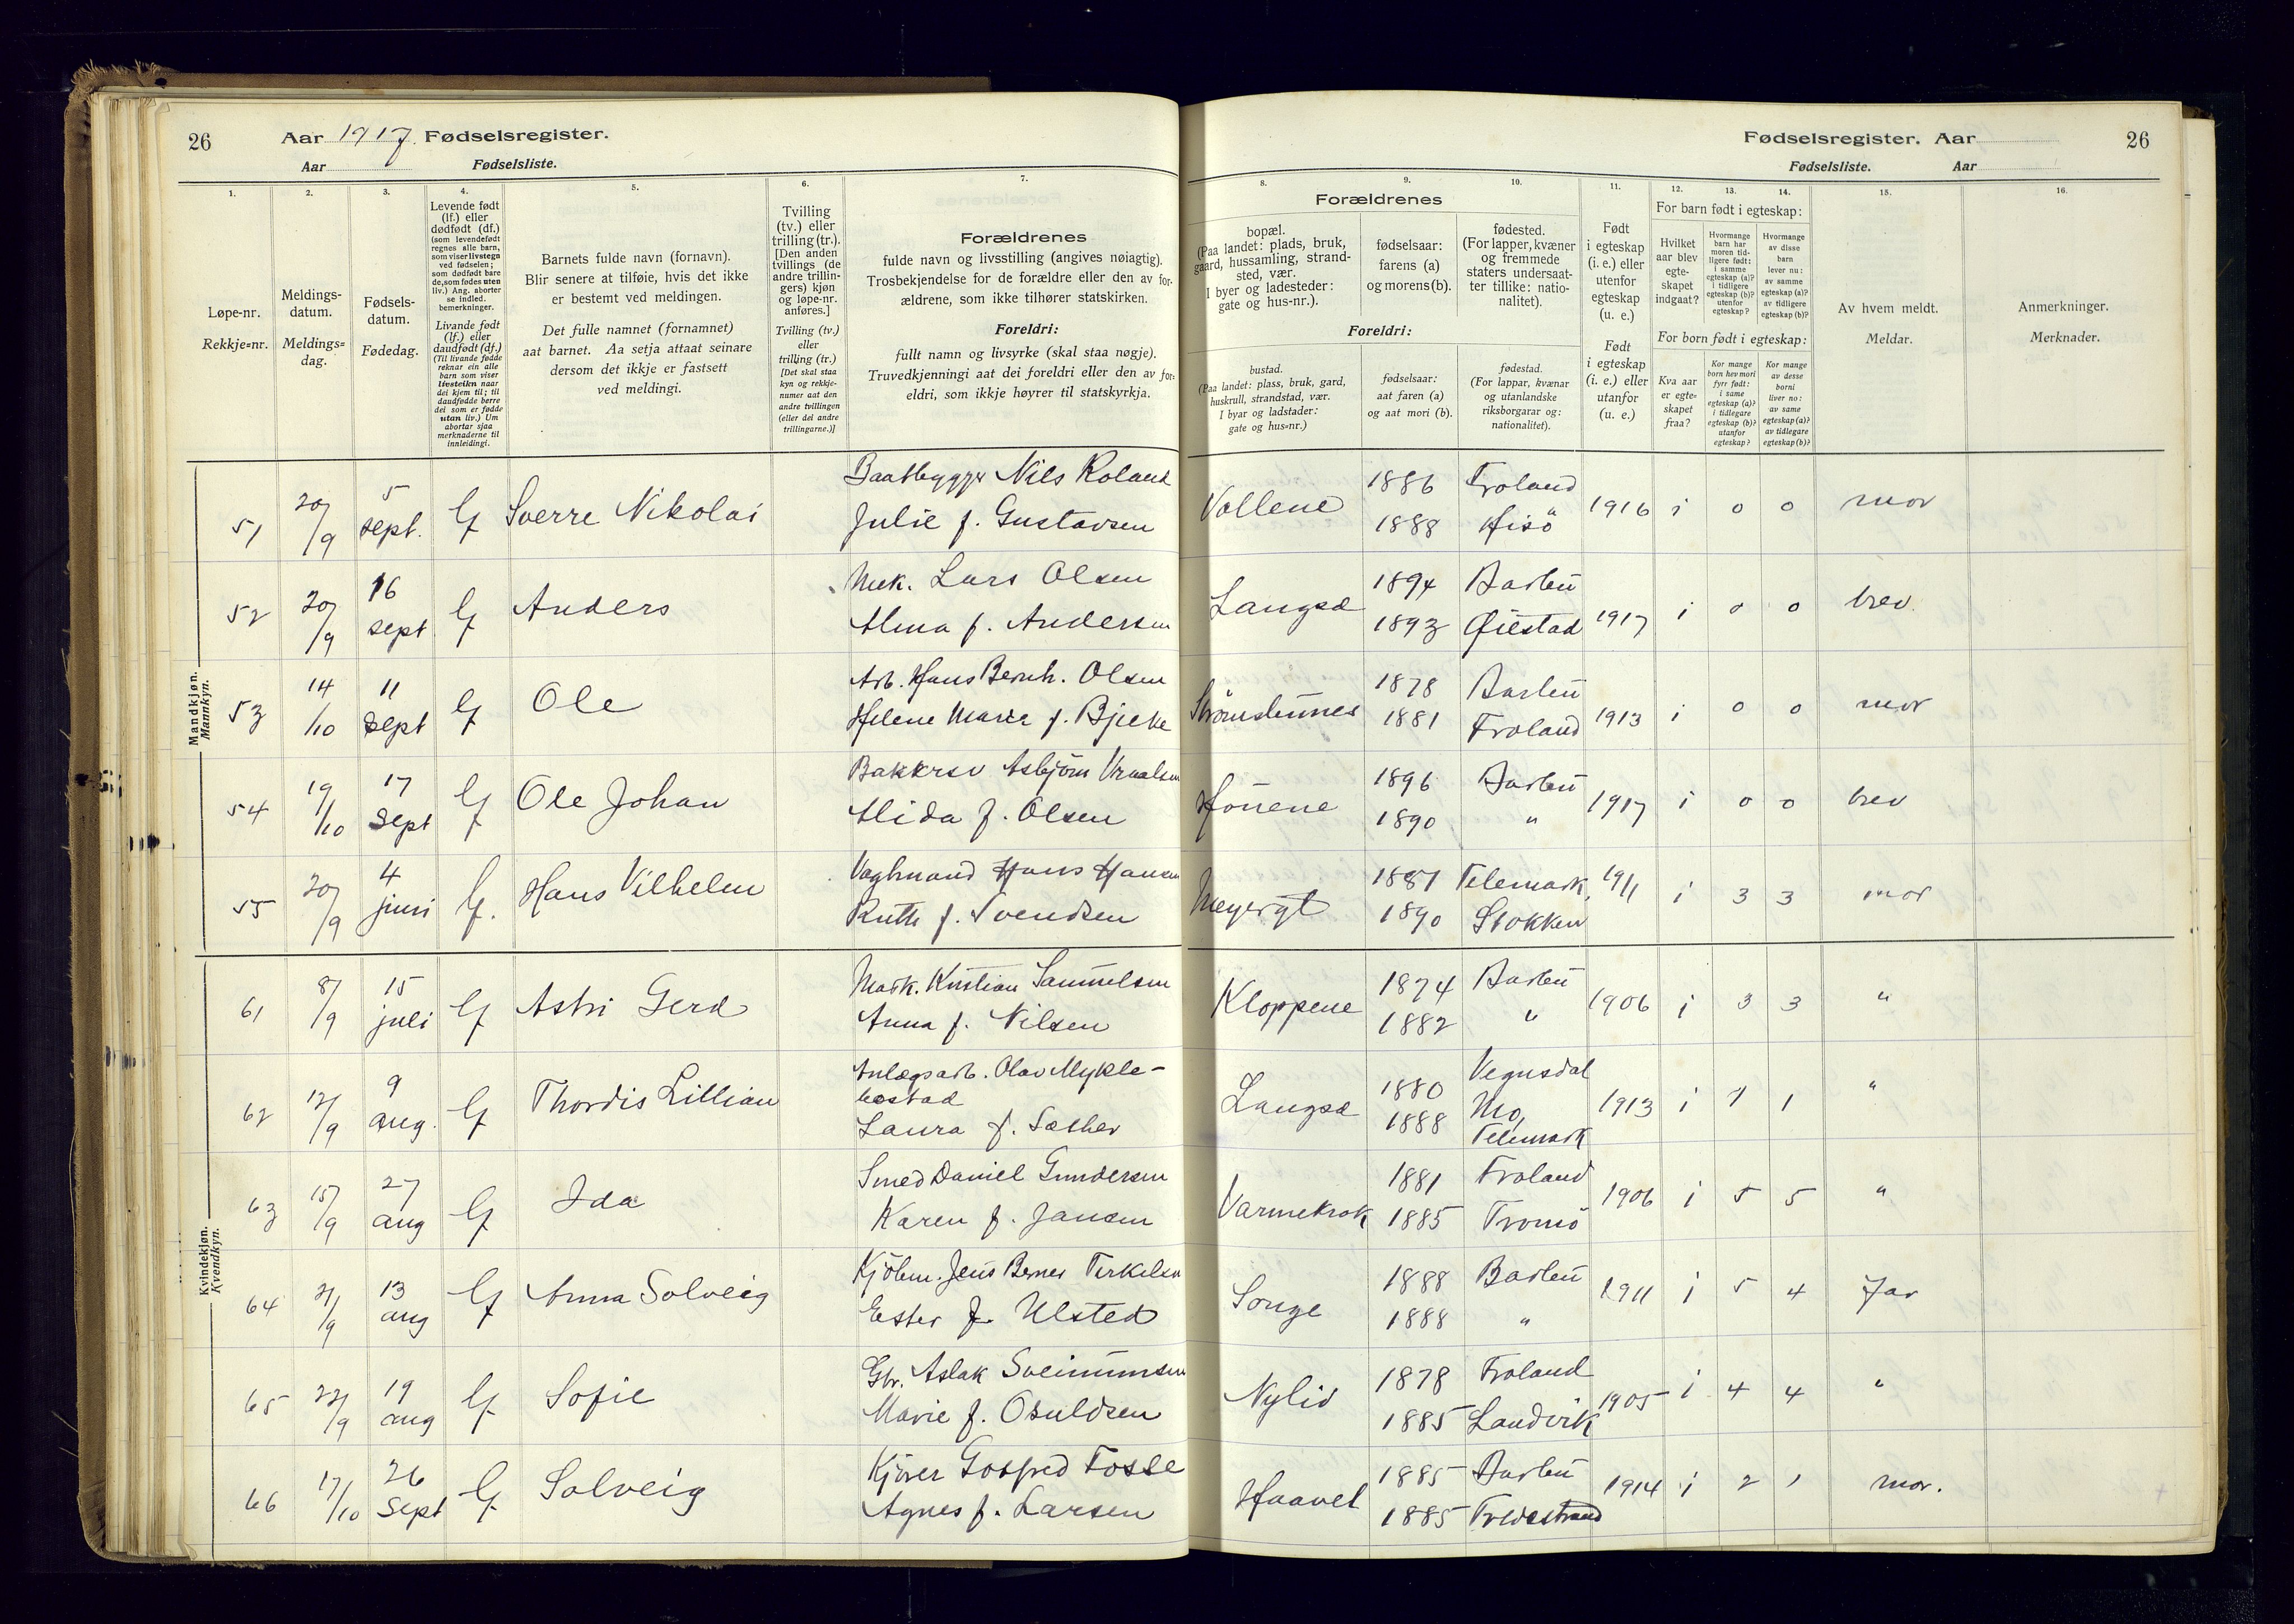 26
Aar 1917. Fødselsregister.
Aar Fødselsliste.
1. 2. 3. 4. 5. 6. 7.
Løpe-nr.
Rekkje=nr.
Meldings-
datum.
Meldings=
dag.
Fødsels-
datum.
Fødedag.
Levende født
(lf.) eller
dødfødt (df.)
(som levendefødt
regnes alle barn,
som viser livstegn
ved fødselen;
som dødfødt bare
de, som fødes uten
liv.) Ang. aborter
se indled.
bemerkninger.
Livande født
(lf.) eller
daudfødt (df.)
(Til livande fødde
reknar ein alle
barn som viser
livsteikn naar
dei kjem til; til
daudfødde berre
dei som er fødde
utan liv.) Um
abortar sjaa
merknaderne til
innleidingi.
Barnets fulde navn (fornavn).
Blir senere at tilføie, hvis det ikke
er bestemt ved meldingen.
Det fulle namnet (fornamnet)
aat barnet. Aa setja attaat seinare
dersom det ikkje er fastsett
ved meldingi.
Tvilling
(tv.) eller
trilling (tr.).
[Den anden
tvillings (de
andre trillin-
gers) kjøn
og løpe-nr.
anføres.]
Tvilling (tv.)
eller
trilling (tr.)
[Det skal staa
kyn og rekkje-
numer aat den
andre tvillingen
(eller dei andre
trillingarne.)]
Forældrenes
fulde navn og livsstilling (angives nøiagtig).
Trosbekjendelse for de forældre eller den av for-
ældrene, som ikke tilhører statskirken.
Foreldri:
fullt namn og livsyrke (skal staa nøgje).
Truvedkjenningi aat dei foreldri eller den av for=
eldri, som ikkje høyrer til statskyrkja.
Fødselsregister. Aar
26
Fødselsliste. Aar
8. 9. 10. 11. 12. 13. 14. 15. 16.
Forældrenes
bopæl.
(Paa landet: plads, bruk,
gaard, hussamling, strand-
sted, vær.
I byer og ladesteder:
gate og hus-nr.).
fødselsaar:
farens (a)
og morens (b).
fødested.
(For lapper, kvæner
og fremmede
staters undersaat-
ter tillike: natio-
nalitet).
Foreldri:
bustad.
(Paa landet: plass, bruk, gard,
huskrull, strandstad, vær.
I byar og ladstader:
gate og hus=nr.)
fødselsaar:
aat faren (a)
og aat mori (b).
fødestad.
(For lappar, kvænar
og utanlandske
riksborgarar og:
nationalitet).
Født
i egteskap
(i. e.) eller
utenfor
egteskap
(u. e.)
Født
i egteskap
(i. e.) eller
utanfor
(u. e.)
For barn født i egteskap:
Hvilket
aar blev
egte-
skapet
indgaat?
Hvormange
barn har
moren tid-
ligere født:
i samme
egteskap (a)?
i tidligere
egteskap (b)?
utenfor
egteskap?
Hvormange
av disse
barn
lever nu:
av samme
egteskap (a)?
av tidligere
egteskap (b)?
For born født i egteskap:
Kva aar
er egte=
skapet
fraa?
Kor mange
born hev mori
fyrr født:
i same
egteskap (a)?
i tidlegare
egteskap (b)?
utanfor
egteskap?
Kor mange
av desse
borni
liver no:
av same
egteskap (a)?
av tidlegare
egteskap (b)?
Av hvem meldt.
Meldar.
Anmerkninger.
Merknader.
Mandkjøn.
Mannkyn.
51 20/9 5 sept. lf Sverre Nikolai Baatbygger Nils Roland
Julie f. Gustavsen
Vollene 1886 Froland 1916 i 0 0 mor
1888 Hisö
52 20/9 16 sept lf Anders Mek. Lars Olsen
Alma f. Andersen
Langsæ 1894 Barbu 1917 i 0 0 brev
1893 Øiestad
53 14/10 11 sept lf Ole Arb. Hans Bernh. Olsen
Helene Marie f.
Strömsbunes 1878 Barbu 1913 i 0 0 mor
1881 Froland
54 19/10 17 sept lf Ole Johan Asbjörn
Alida f. Olsen
1896 Barbu 1917 i 0 0 brev
1890 "
55 20/9 4 juni lf. Hans Vilhelm Vagtmand Hans Hansen
Ruth f. Svendsen
Meyergt 1887 Telemark, 1911 i 3 3 mor
1890 Stokken
Kvindekjøn.
Kvendkyn.
61 8/9 15 juli lf Astri Gerd Mask. Kristian Samuelsen
Anna f. Nilsen
Kloppene 1874 Barbu 1906 i 3 3 "
1882 "
62 12/9 9 aug. lf Thordis Lillian Anlægsarb. Olav Mykle-
bostad
Laura f. Sæther
Langsæ 1880 Vegusdal 1913 i 1 1 "
1888 Mo,
Telemark
63 15/9 27 aug lf Ida Smed Daniel Gundersen
Karen f. Jansen
Varmekrok 1881 Froland 1906 i 5 5 "
1885 Tromö
64 21/9 13 aug lf Anna Solveig Kjöbm. Jens Berner Terkelsen
Ester f. Ulsted
Songe 1888 Barbu 1911 i 5 4 Far
1888 "
65 22/9 19 aug lf Sofie Gbr. Aslak Sveinumsen
Marie f. Osuldsen
Nylid 1878 Froland 1905 i 4 4 "
1885 Landvik
66 17/10 26 sept lf Solveig Kjörer Gotfred Fosse
Agnes f. Larsen
Haavet 1885 Barbu 1914 i 2 1 mor.
1885 Tvedestrand